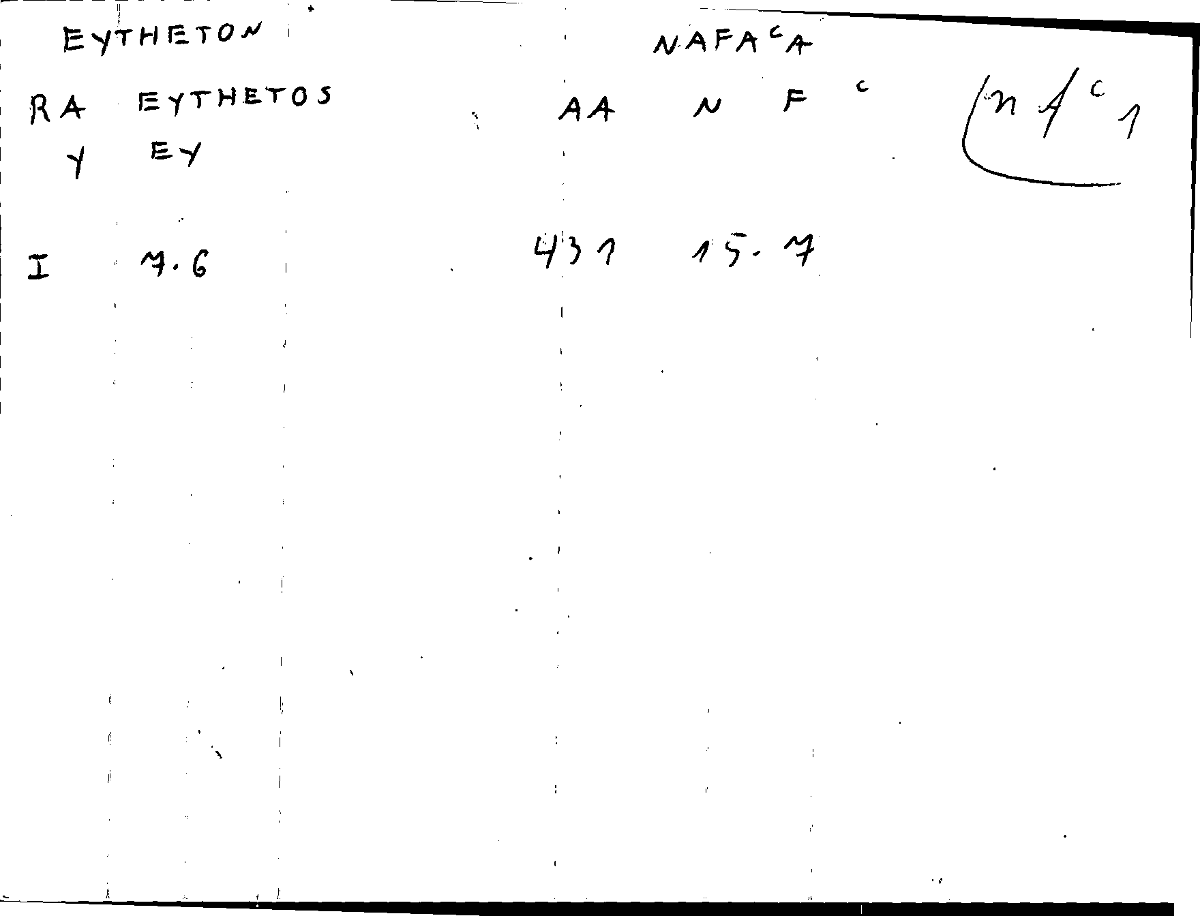 EYTHETON NAFAᶜA
RA EYTHETOS AA N F ᶜ nfᶜ1
Y EY
I 7.6 431 15.7